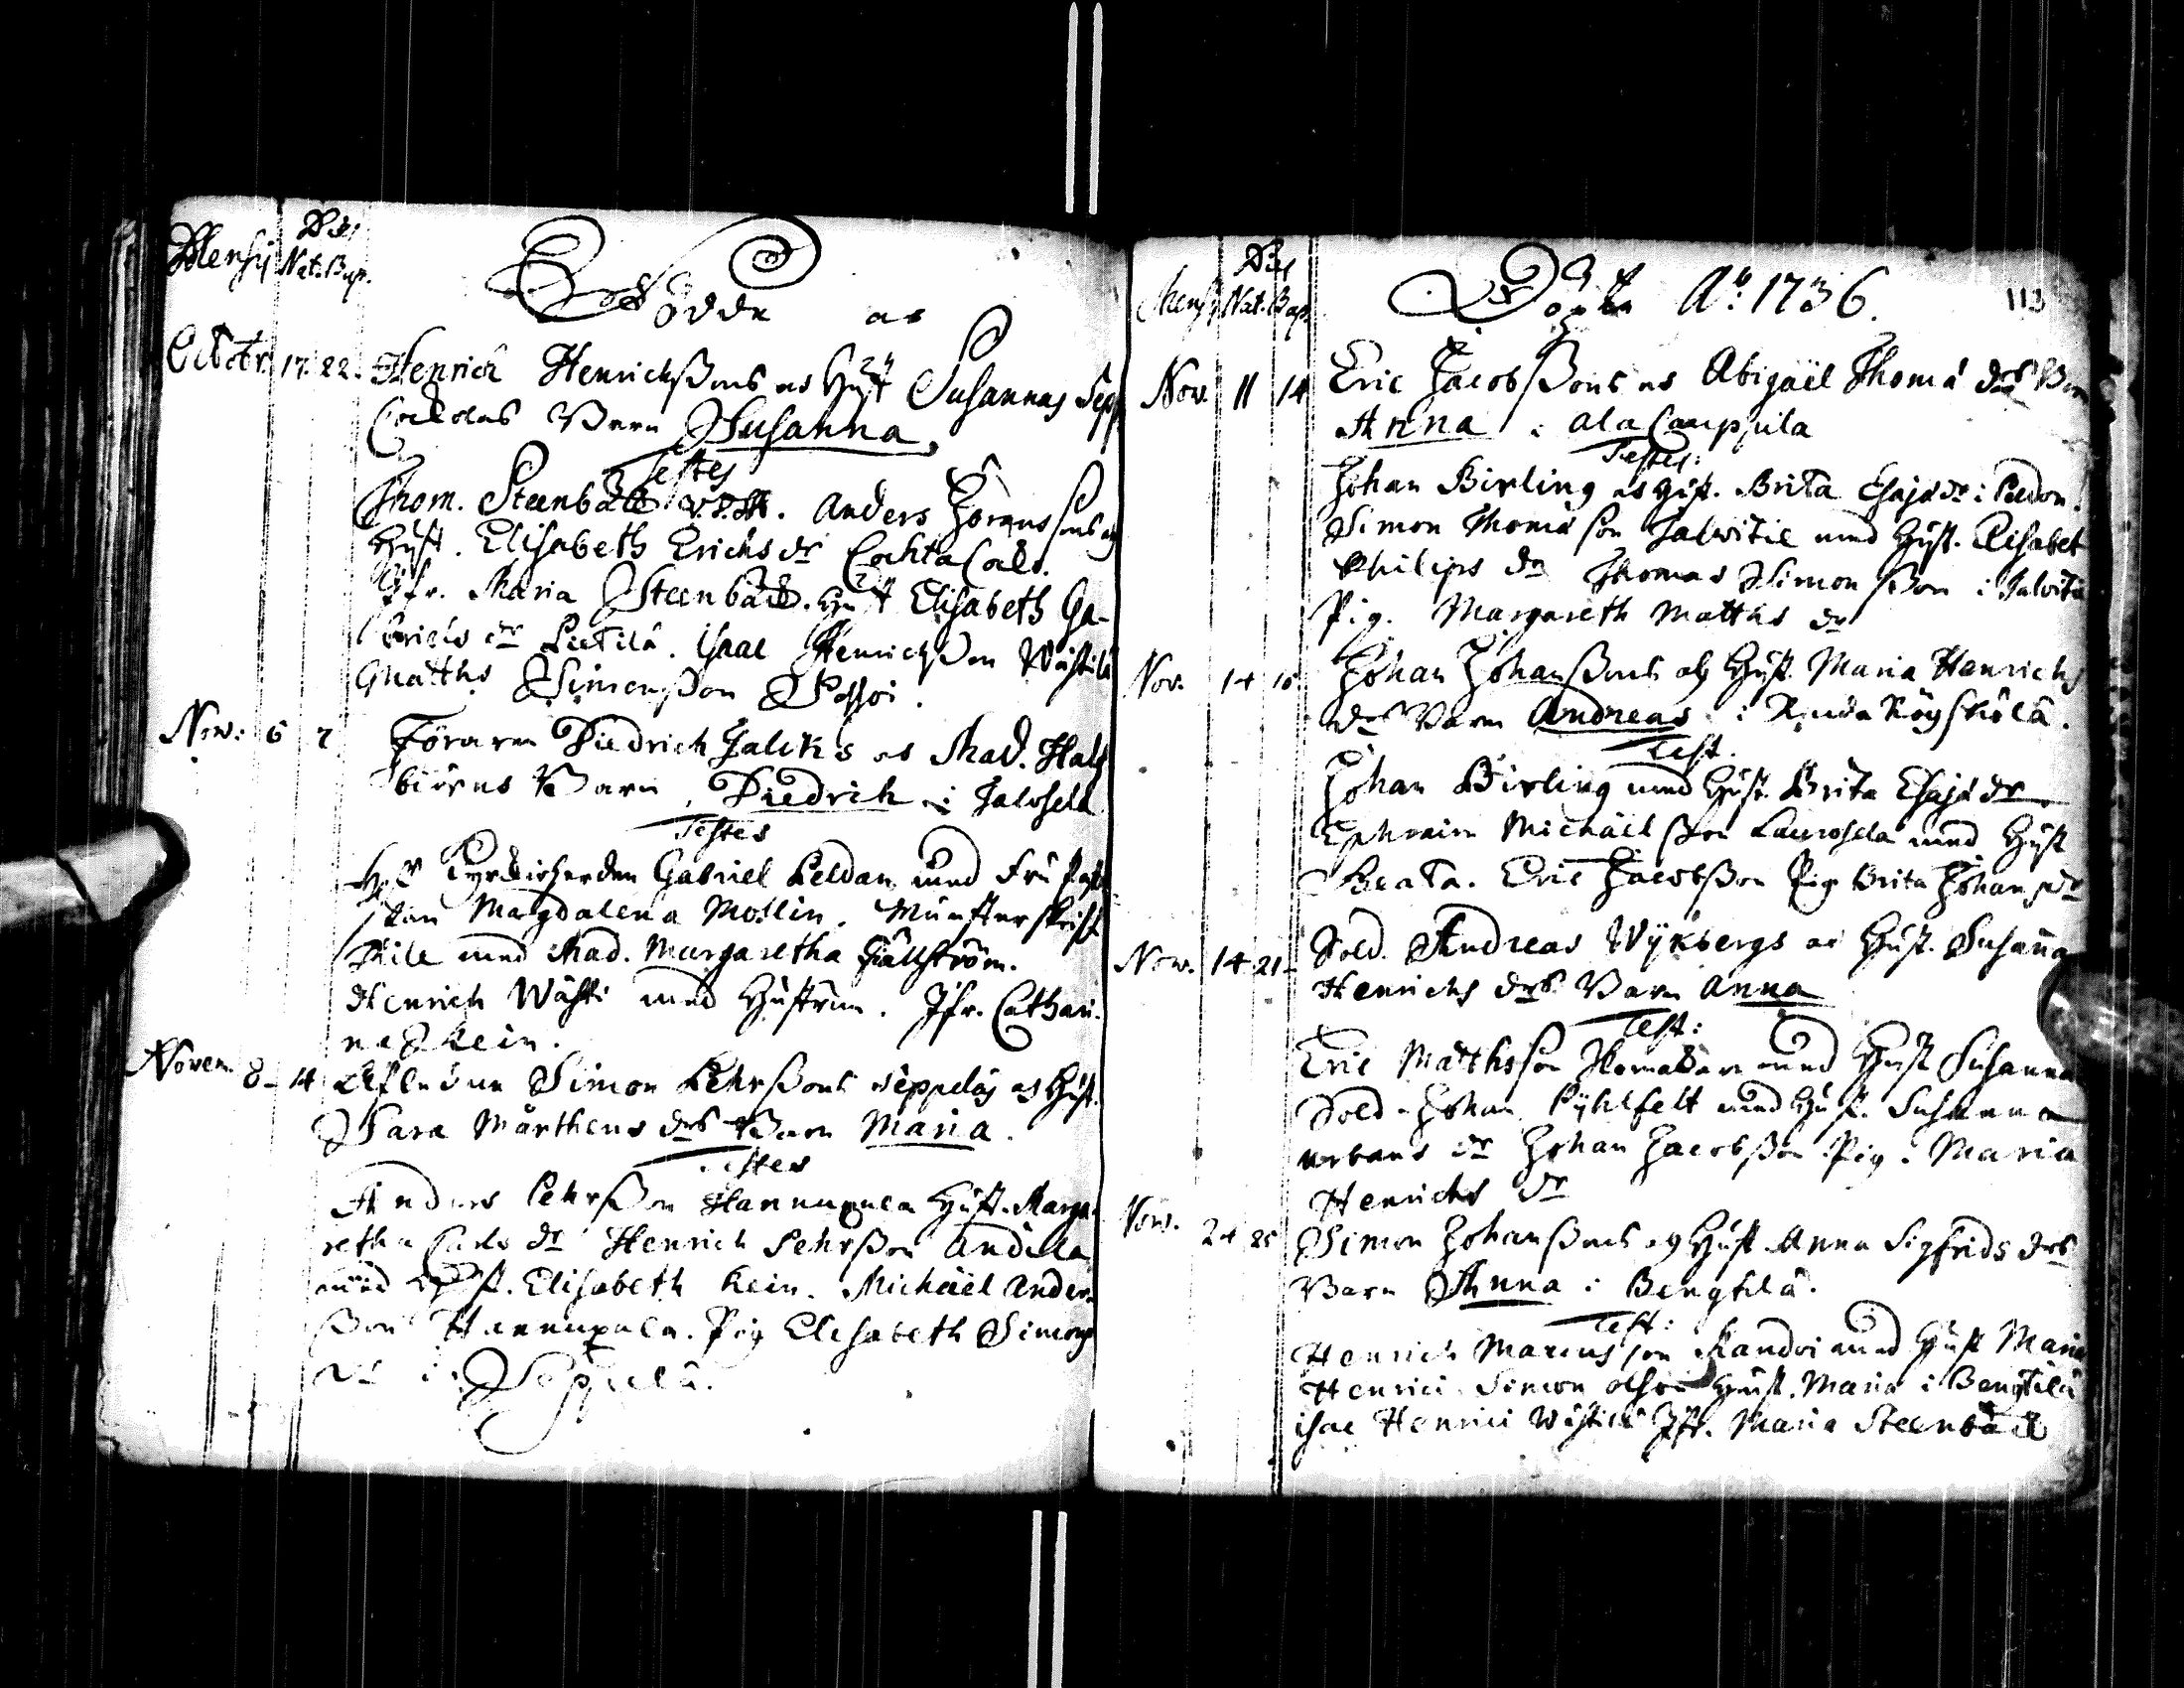 Mensis Dies
Nat. Bap.
Födde as
Octobr. 17. 22. Henrich Henrichssons as Hust Susannas Sep
Barn Susanna,
Testes
Thom. Steenbäck V.D.M. Anders Göranssons as
Hust. Elisabeth Erichs dr
Jfr. Maria Steenbäck. Hust Elisabeth Ga-
briels dr Pietilä. Isaac Henrichsson Wästilä
Matths Simonsson Possoi.
Nov: 6 7 Föraren Diedrich Jalcks as Mad. Hals
biörns Barn, Diedrich i
Testes
Her Kyrckioherden Gabriel Peldan med Fru
Magdalena Moslin. Münsterskrif
med Mad. Margaretha Fiällström.
Henrich Wästi med Hustrun. Jfr. Cathari-
na Lein.
Novem. 8 - 14 Simon Pehrssons as Hust.
Sara Mårthens drs Barn Maria.
Testes
Anders Pehrsson Hannuxela Hust. Marga-
retha Carls dr Henrich Pehrsson Andila
med Hust. Elisabeth Lein. Michäel Anders-
son Hannuxela. Pig Elisabeth Simons
dr i Seppälä.
Mensis Dies
Nat. Bap.
Döpte Ao: 1736. 113
Nov. 11 14 Eric Jacobssons as Abigäel Thomæ drs Barn
Anna i
Testes:
Johan Birling as Hust. Brita Esajæ dr i
Simon Thomæ son med Hust. Elisabet
Philips dr Thomas Simonsson i
Pig. Margareth Matths dr
Nov. 14 16 Johan Johanssons as Hust. Maria Henrichs
drs Barn Andreas i
Test.
Johan Birling med Hust. Brita Esajæ dr.
Ephraim Michäelsson Laurosela med Hust
Beata. Eric Jacobsson Pig Brita Johans dr
Nov. 14 21 - Sold. Andreas Wykbergs as Hust. Susanna
Henrichs drs Barn Anna
Test:
Eric Matthsson med Hust Susanna
Sold. Johan Pyhlfelt med Hust. Susanna
urbans dr Johan Jacobsson Pig. Maria
Henrichs dr
Nov. 24 25 Simon Johanssons as Hust Anna Sigfrids drs
Barn Anna i Bengtilä.
Test:
Henrich Marcusson med Hust Maria
Henrici Simon Hust. Maria i Bengtilä
isac Henrici Wästilä Jfr. Maria Steenbäck